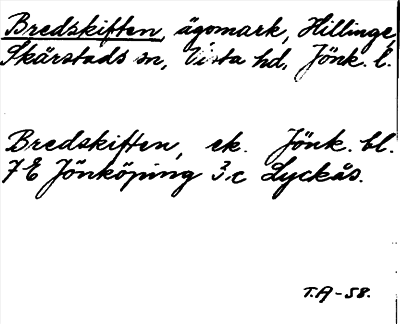 Bredskiften, ägomark, Hillinge,
Skärstads sn, Vista hd, Jönk. l.
Bredskiften, ek. Jönk. bl.
7E Jönköping 3c Lyckås.
T.A-58.